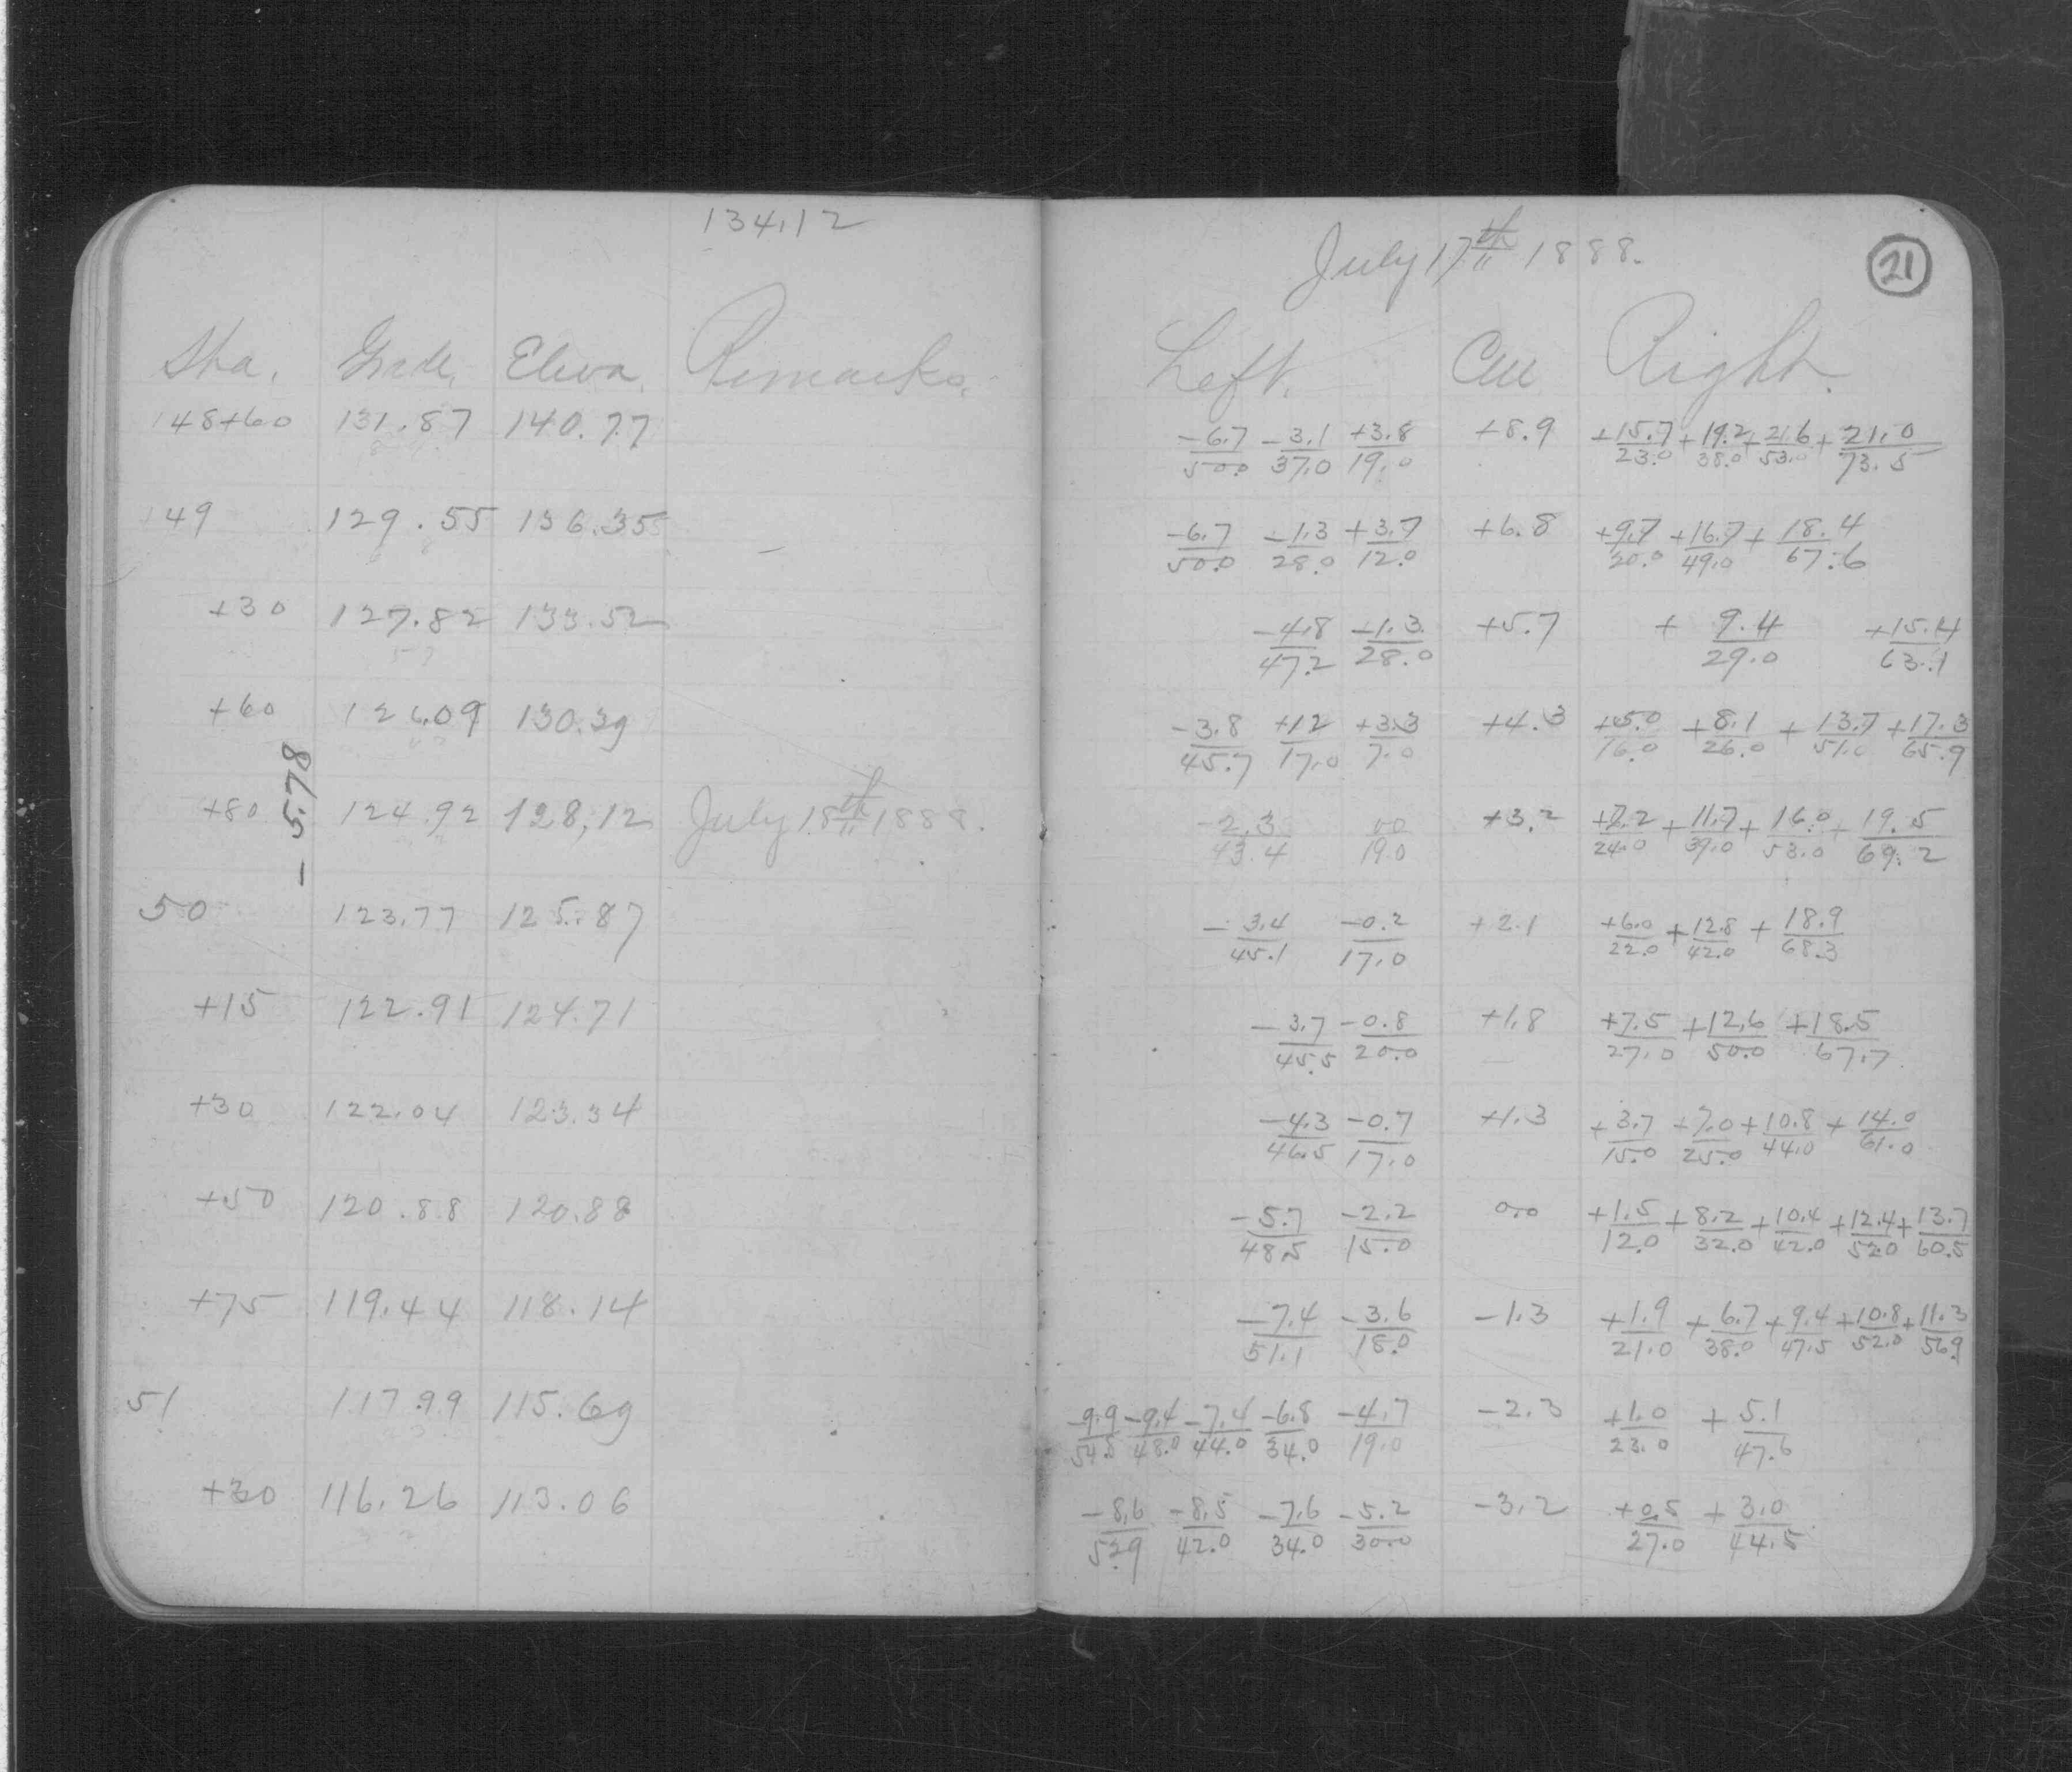 134.12
Sta. Grade. Eleva. Remarks.
148+60 131.87 140.77
149 129.55 136.35
+30 127.82 133.52
+60 126.09 130.39
- 5.78
+80 124.92 128.12 July 18th 1888.
50 123.77 125.87
+15 122.91 124.71
+30 122.04 123.34
+50 120.88 120.88
+75 119.44 118.14
51 117.99 115.69
+30 116.26 113.06
July 17th 1888.
21
Left. Cen Right.
-6.7/50.0 -3.1/37.0 +3.8/19.0 +8.9 +15.7/23.0 +19.2/38.0 +21.6/53.0 +21.0/73.5
-6.7/50.0 -1.3/28.0 +3.7/12.0 +6.8 +9.7/20.0 +16.7/49.0 +18.4/67.6
-4.8/47.2 +1.3/28.0 +5.7 +9.4/29.0 +15.4/63.1
-3.8/45.7 +1.2/17.0 +3.3/7.0 +4.3 +5.0/16.0 +8.1/26.0 +13.7/51.0 +17.3/65.9
-2.3/43.4 0.0/19.0 +3.2 +7.2/24.0 +11.7/39.0 +16.0/53.0 +19.5/69.2
-3.4/45.1 -0.2/17.0 +2.1 +6.0/22.0 +12.8/42.0 +18.9/68.3
-3.7/45.5 -0.8/20.0 +1.8 +7.5/27.0 +12.6/50.0 +18.5/67.7
-4.3/46.5 -0.7/17.0 +1.3 +3.7/15.0 +7.0/25.0 +10.8/44.0 +14.0/61.0
-5.7/48.5 -2.2/15.0 0.0 +1.5/12.0 +8.2/32.0 +10.4/42.0 +12.4/52.0 +13.7/60.5
-7.4/51.1 -3.6/18.0 -1.3 +1.9/21.0 +6.7/38.0 +9.4/47.5 +10.8/52.0 +11.3/56.9
-9.9/54.8 -9.4/48.0 -7.4/44.0 -6.8/34.0 -4.7/19.0 -2.3 +1.0/23.0 +5.1/47.6
-8.6/52.9 -8.5/42.0 -7.6/34.0 -5.2/30.0 -3.2 +0.5/27.0 +3.0/44.5